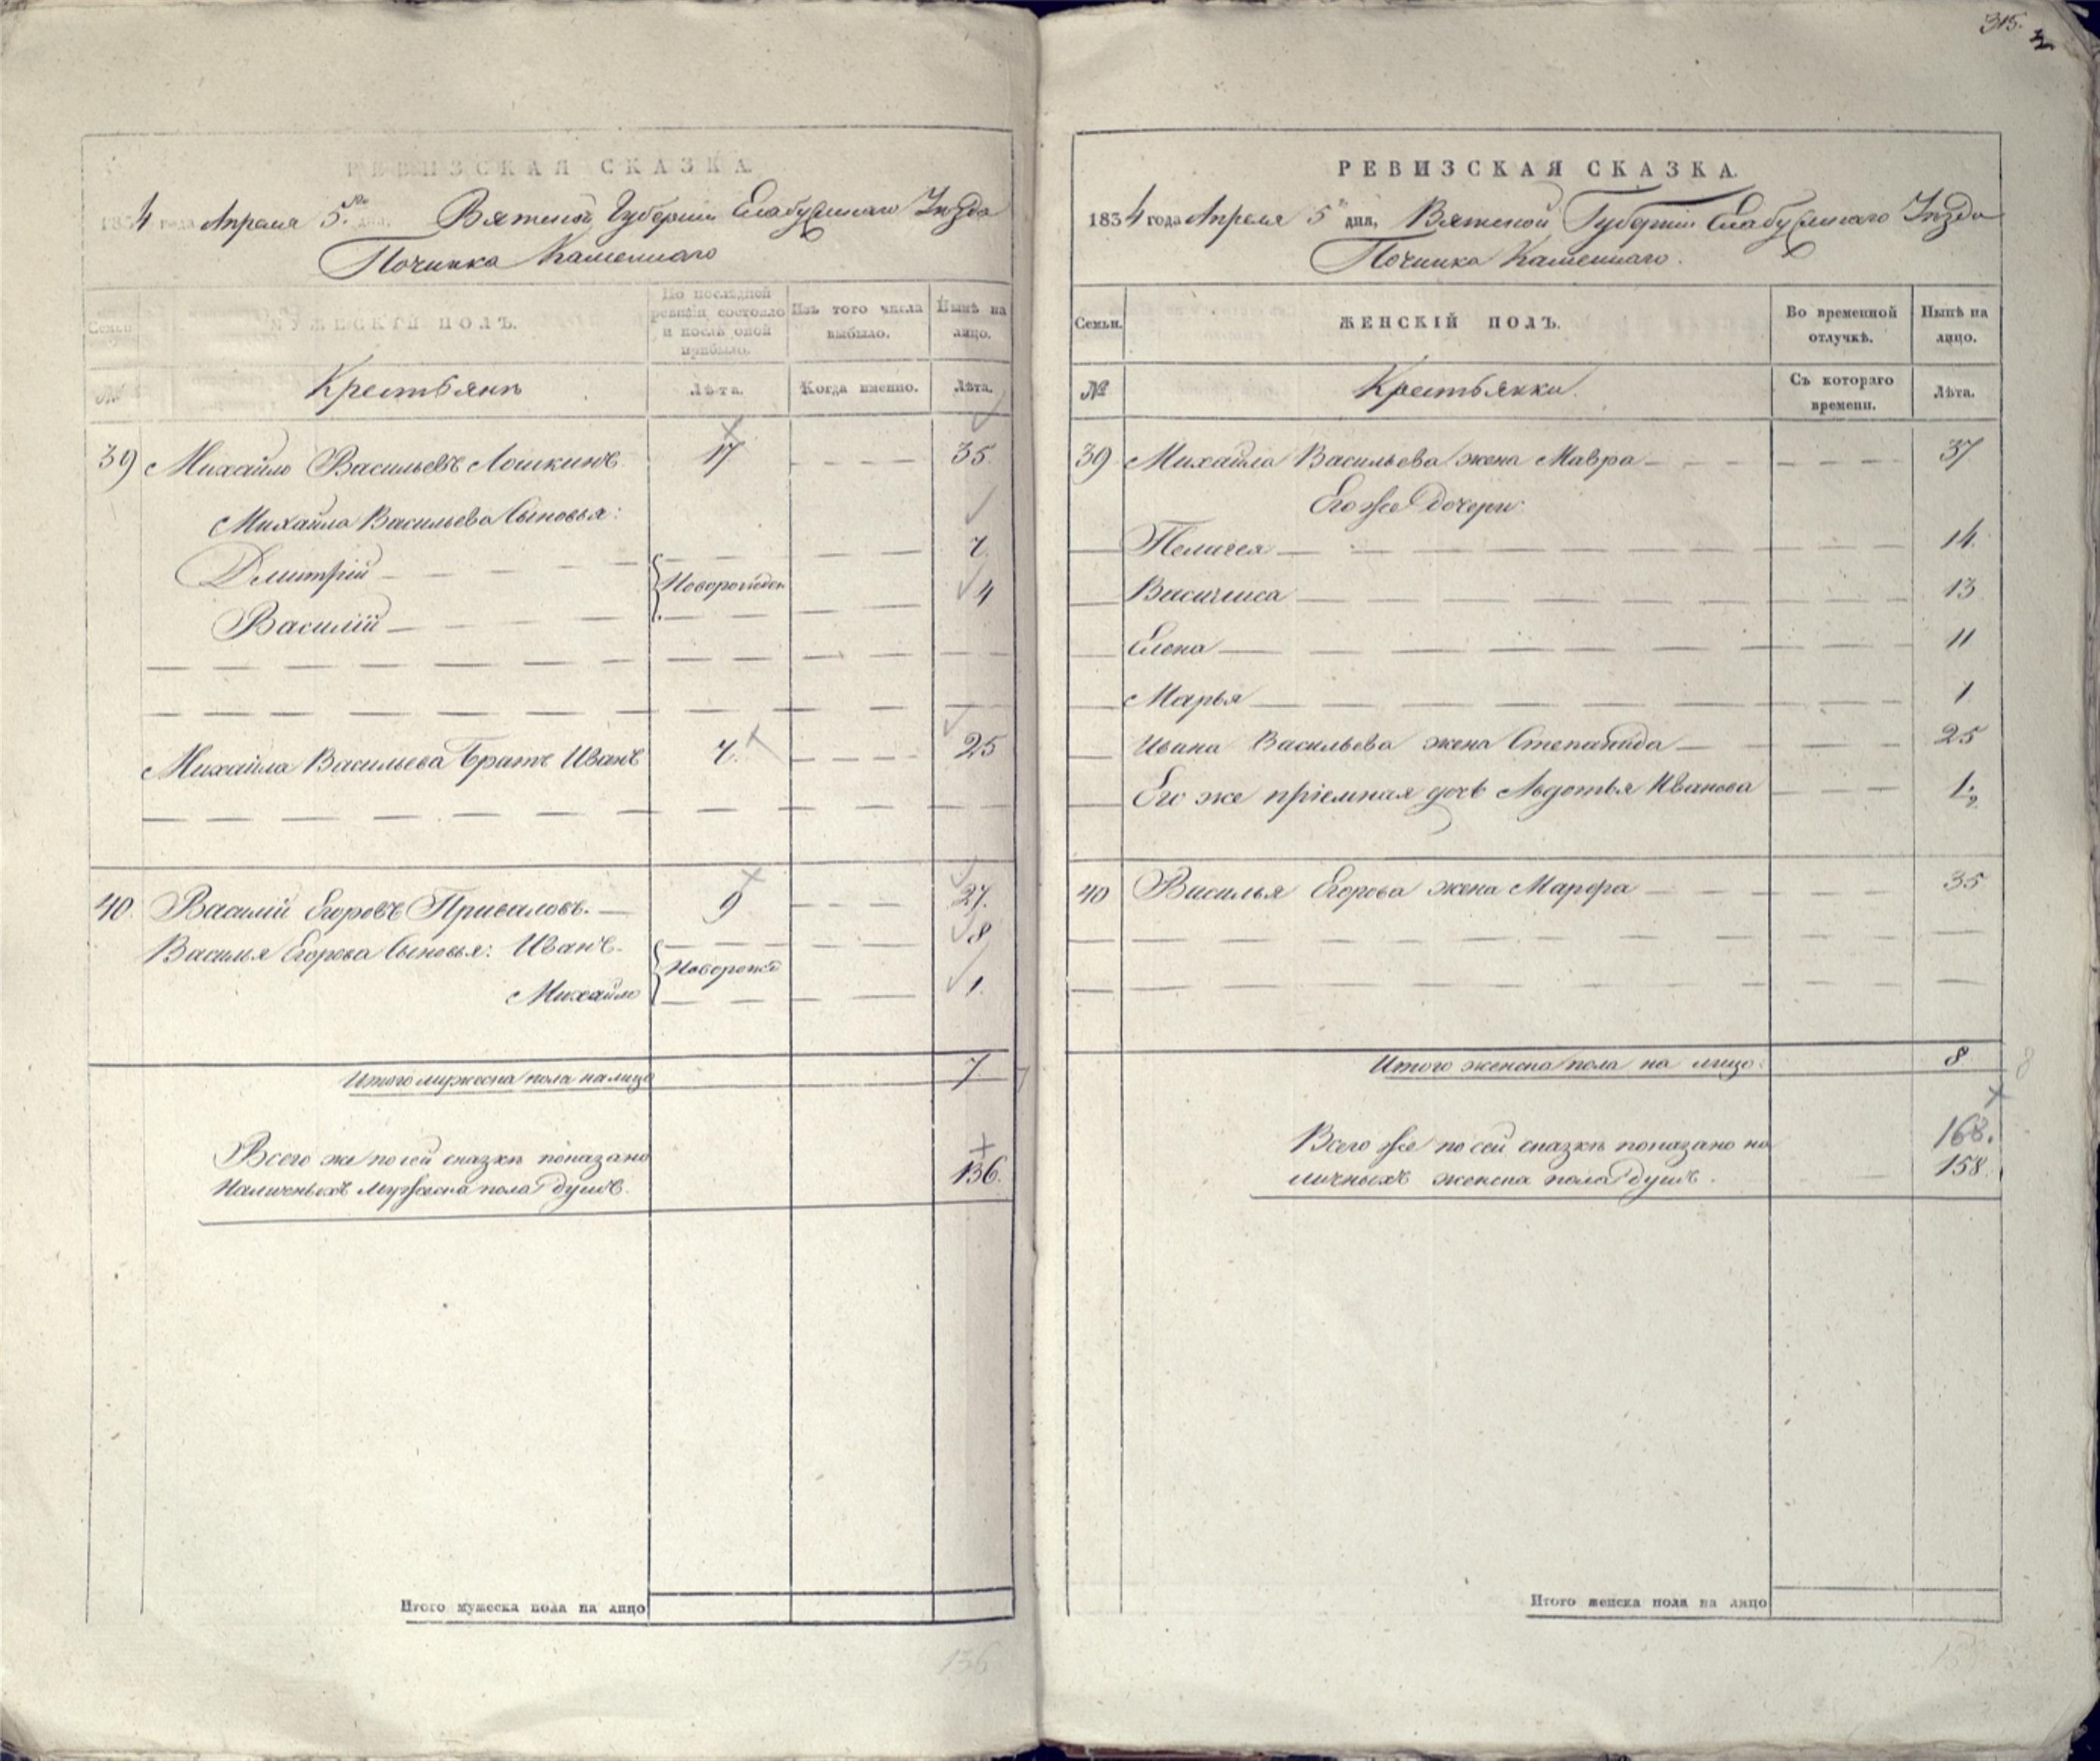 315.
РЕВИЗСКАЯ СКАЗКА.
1834 года Апреля 5го дня, Вятской Губернии Елабужскаго Уѣзда
Починка Каменнаго
Семьи
МУЖЕСКІЙ ПОЛЪ.
По послѣдней ревизіи состояло и послѣ оной прибыло.
Изъ того числа выбыло.
Нынѣ на лицо.
№
Крестьянъ
Лѣта.
Когда именно.
Лѣта.
39 Михайло Васильевъ Лошкинъ 17 35.
Михайла Васильева Сыновья:
Дмитрій Новорожден 7.
Василій 4
Михайла Васильева Братъ Иванъ 7. 25
40. Василій Егоровъ Приваловъ. 9 27.
Василья Егорова Сыновья: Иванъ. Новорожд 8
Михайло 1.
Итого мужеска пола налицо 7
Всего же по сей сказкѣ показано
Наличныхъ Мужеска пола Душъ. 136.
Итого мужеска пола на лицо
136
РЕВИЗСКАЯ СКАЗКА.
1834 года Апреля 5го дня, Вятской Губернии Елабужскаго Уѣзда
Починка Каменнаго.
Семьи.
ЖЕНСКІЙ ПОЛЪ.
Во временной отлучкѣ.
Нынѣ на лицо.
№
Крестьянки.
Съ котораго времени.
Лѣта.
39 Михайла Васильева жена Мавра 37
Его же Дочери:
Пелагея 14.
Василиса 13
Елена 11
Марья 1
Ивана Васильева жена Степанида 25
Его же пріемная дочь Авдотья Иванова 1/2
40 Василья Егорова жена Марфа 35
Итого женска пола на лицо: 8. 8
Всего же по сей сказкѣ показано на 168.
личныхъ женска пола Душъ. 158.
Итого женска пола на лицо